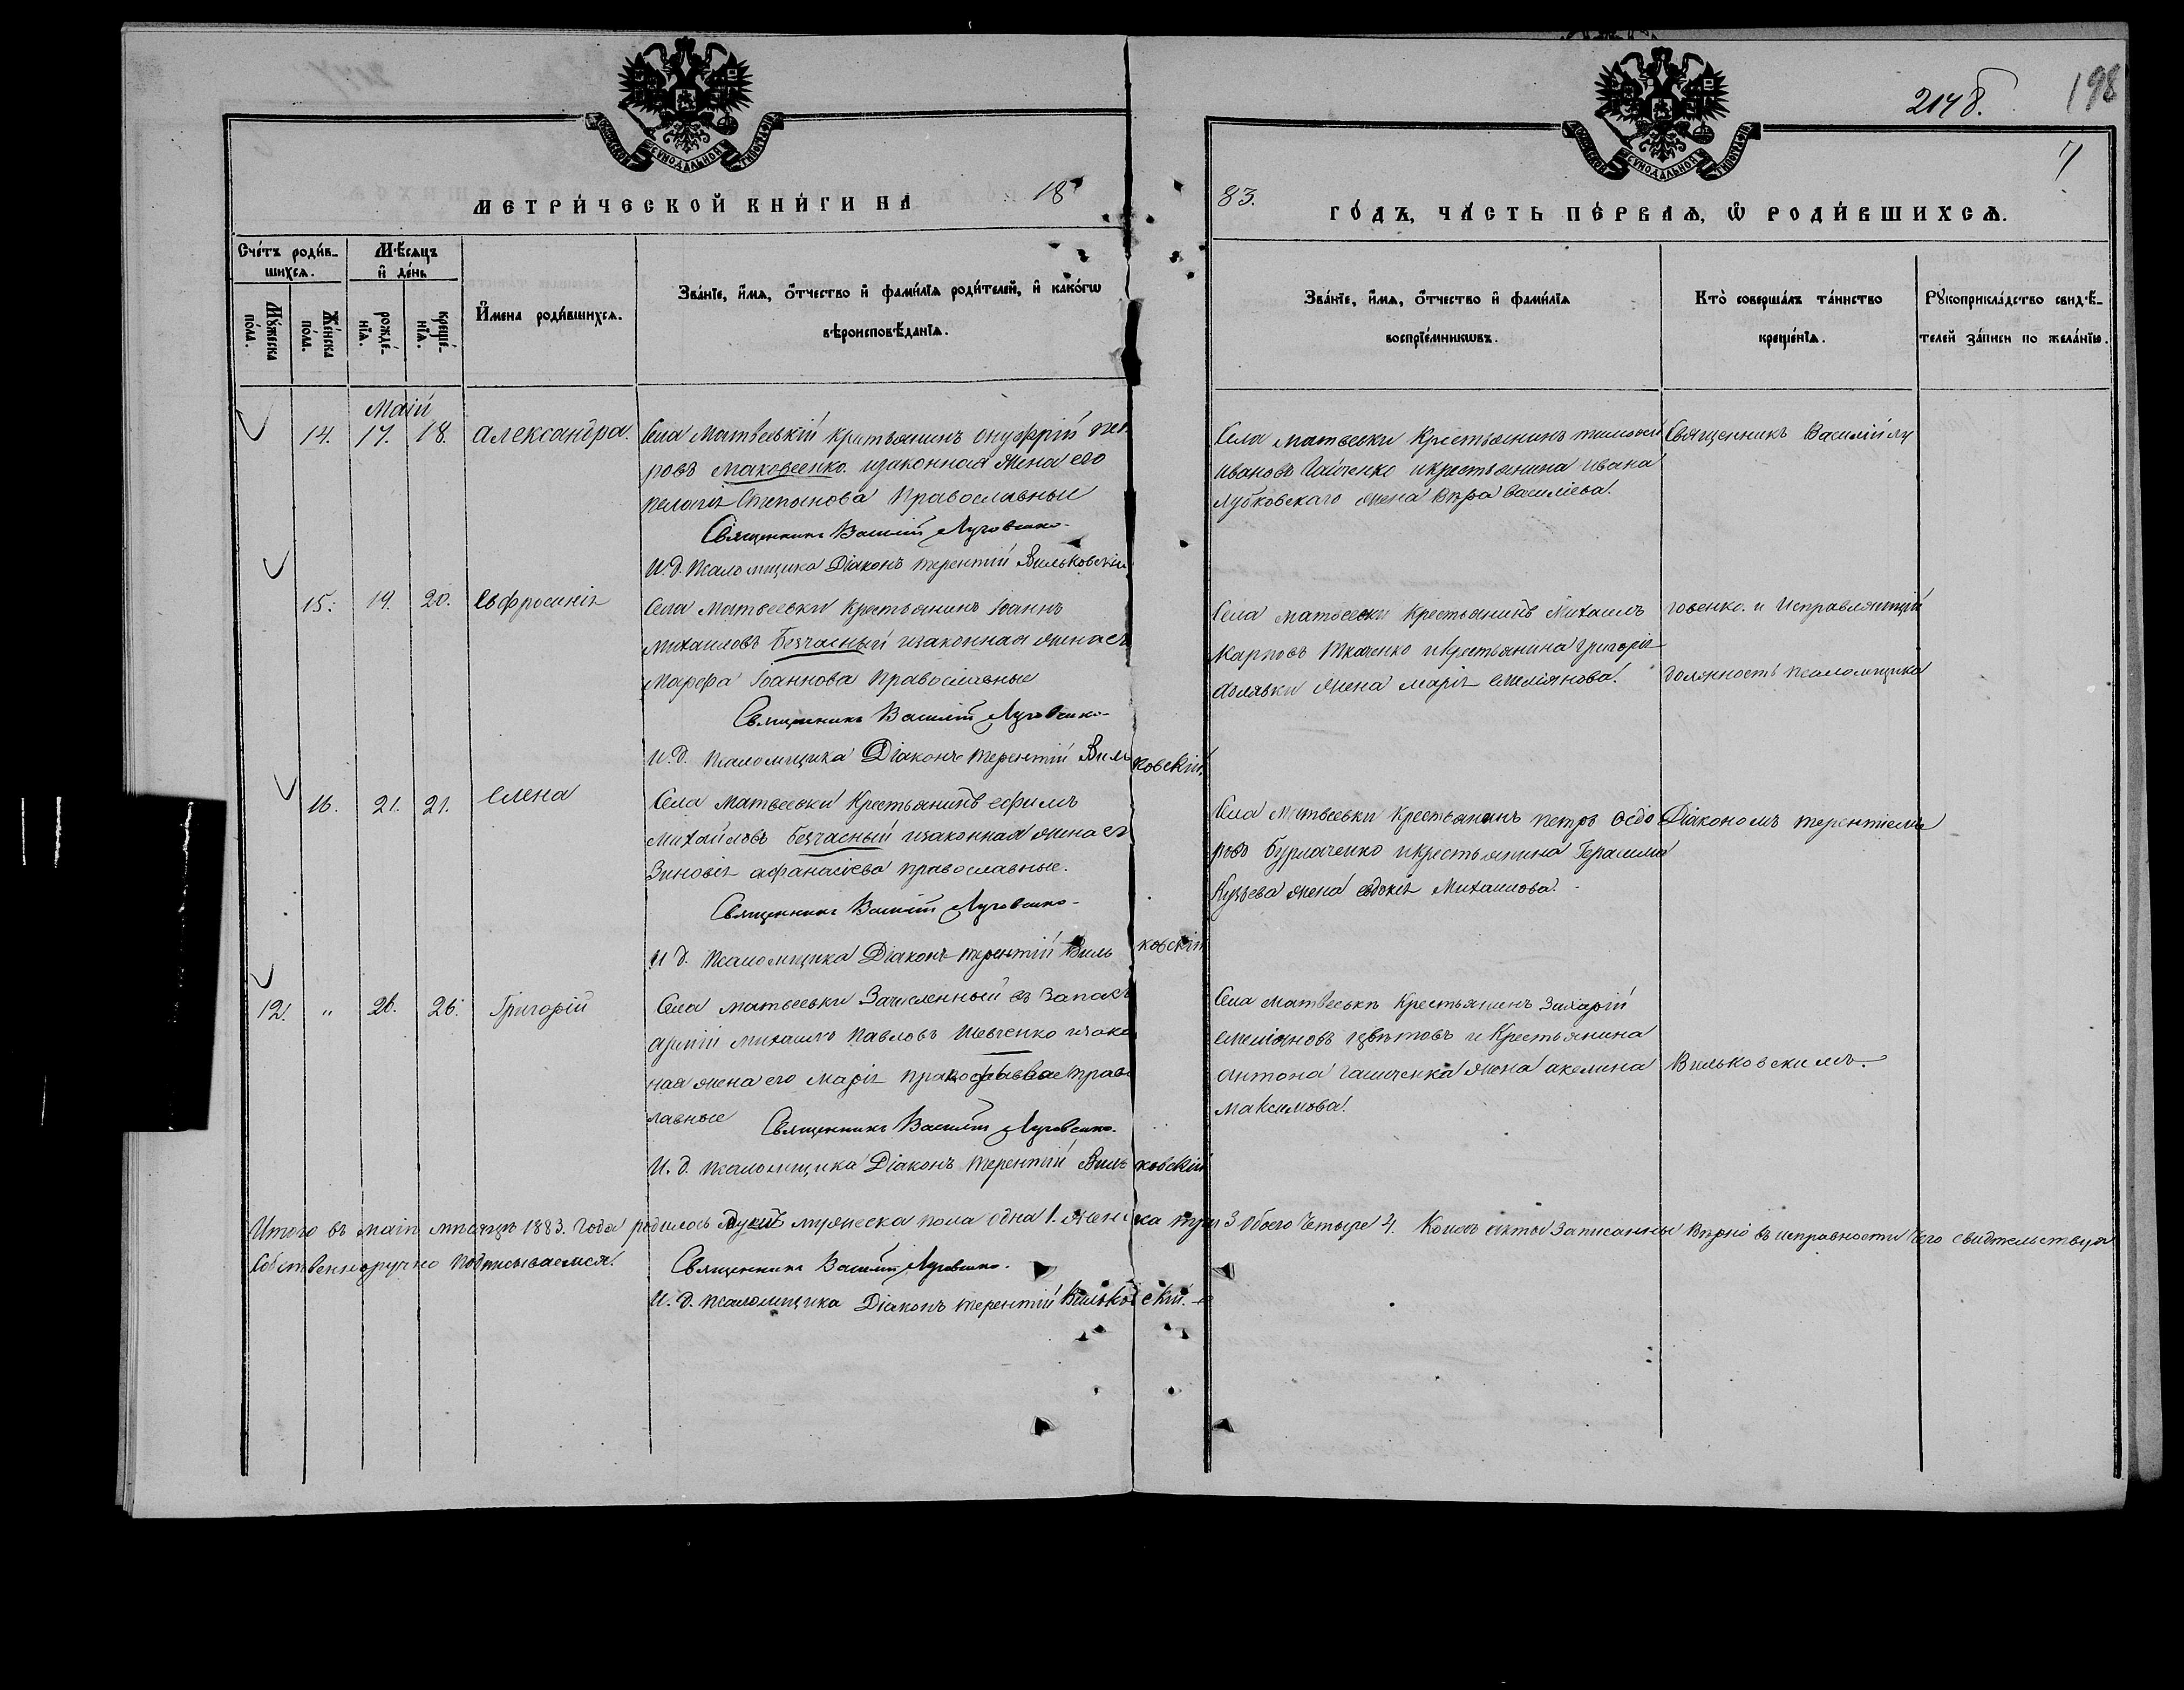 198
214 8.
7
МОСКОВСКОЙ СѴНОДАЛЬНОЙ ТИПОГРАФІИ
МОСКОВСКОЙ СѴНОДАЛЬНОЙ ТИПОГРАФІИ
МЕТРИ́ЧЕСКОЙ КНИ́ГИ НА 18
83. ГО́ДЪ, ЧА́СТЬ ПЕ́РВАѦ, Ѡ РОДИ́ВШИХСѦ.
Сче́тъ роди́в-
шихсѧ.
Мꙋ́жеска
по́ла.
Же́нска
по́ла.
Мѣ́сѧцъ
и҆ де́нь
рожде́-
нїѧ.
креще́-
нїѧ.
И҆мена̀ роди́вшихсѧ.
Зва́нїе, и҆́мѧ, ѻ҆́тчество и҆ фами́лїѧ роди́телей, и҆ како́гѡ
вѣроисповѣ́данїѧ.
Зва́нїе, и҆́мѧ, ѻ҆́тчество и҆ фами́лїѧ
воспрїе́мникѡвъ.
Кто̀ соверша́лъ та́инство
креще́нїѧ.
Рꙋкоприкла́дство свидѣ́-
телей за́писи по жела́нїю.
Маій
14. 17. 18. Александра.
Села Матвеевкій Кретьянинъ Онуфрій Пет
ровъ Маковеенко изаконная жена его
Пелагія Степанова Православные
Священникъ Василій Луговенко
И. д. Псаломщика Діаконъ Терентій Вильковскій
Села Матвеевки Крестьянинъ Тимофей
Ивановъ Гайченко и крестьянина Ивана
Лубковскаго жена Вѣра Васильева.
Священникъ Василій Лу
15. 19. 20. Евфросинія
Села Матвеевки Крестьянинъ Іоаннъ
Михаиловъ Безчасный изаконная жена ег
Марфа Іоаннова Православные
Священникъ Василій Луговенко
И. д. Псаломщика Діаконъ Терентій Вильковскій.
Села Матвеевки Крестьянинъ Михаилъ
Карповъ Ткаченко и Крестьянина Григорія
жена Марія Емеліянова.
говенко. и Исправляющій
должность псаломщика
16. 21. 21. Елена
Села Матвеевки Крестьянинъ Ефимъ
Михайловъ Безчасный изаконная жена ег
Зиновія Афанасіева православные.
Священникъ Василій Луговенко
И д. Псаломщика Діаконъ Терентій Вильковскій
Села Матвеевки Крестьянинъ Петръ Ѳедо
ровъ Бурлаченко и крестьянина Герасима
жена Евдокія Михаилова.
Діакономъ Терентіемъ
12. " 26. 26. Григорій
Села Матвеевки Зачисленный въ Запасъ
арміи Михаилъ Павловъ Шевченко изакон
ная жена его Марія Прокофьева Право
лавные Священникъ Василій Луговенко.
И. д. Псаломщика Діаконъ Терентій Вильковскій
Села Матвеевки Крестьянинъ Захарій
Емеліяновъ Цвѣтовъ и Крестьянина
Антона жена Акелина
Максимова.
Вильковскимъ.
Итого въ маіи мѣсяцѣ 1883. года родилось мужеска пола одна 1. женска три 3 Обоего Четыре 4. Коихъ акты Записанны Вѣрно въ исправности чего свидѣтельствуя
Собственноручно Подписываемся. Священникъ Василій Луговенко.
И. д. Псаломщика Діаконъ Терентій Вильковскій.